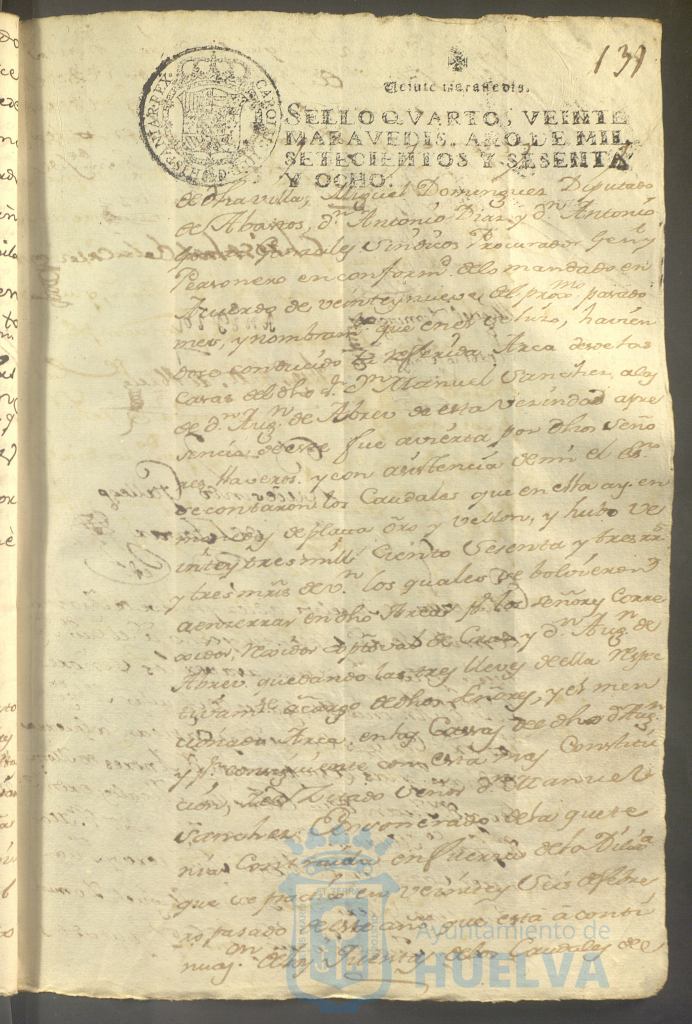 139
Veinte maravedis.
SELLO QVARTO, VEINTE
MARAVEDIS, AÑO DE MIL
SETECIENTOS Y SESENTA
Y OCHO.
de dha villa, Miguel Dominguez Diputado
de Abastos, dn. Antonio Diaz, y dn. Antonio
Gonzales Sindicos Procurador Genl. y
Personero en conformd. de lo mandado en
Acuerdo de veinte y nueve del proxmo. pasado
mes, y nombram que en el se hizo, havien
dose conducido la referida Arca desde las
Casas del dho Manuel Sanchez, a las
de dn. Augn. de Abreu de esta Vesindad apre
sencia de este fue avierta por dhos Seño
res Haveros. y con asistencia de mi el
se contaron los Caudales que en ella ay en
monedas de plata oro y vellon, y hubo ve
inte y tres mill Ciento Sesenta y tres rrs
y tres mrs de vn. los quales se bolvieron
a enzerrar en dho Arca los Señores Corre
xidor, y dn. Augn. de
Abreu quedando las tres llaves de ella Respec
tivamte. a cargo de dhos Señores, y el men
cionada Arca en las Casas de dho dn. Augn.
y con esta Constitu
cion, Señor dn. Manuel
Sanchez de la que te
nia Contraida en fuerza de la Dilixa
que se practico en veinte y Seis de febre
ro pasado de este año que esta a conti
nuaz. de las Quentas de los Caudales de
Ayuntamiento de
HUELVA